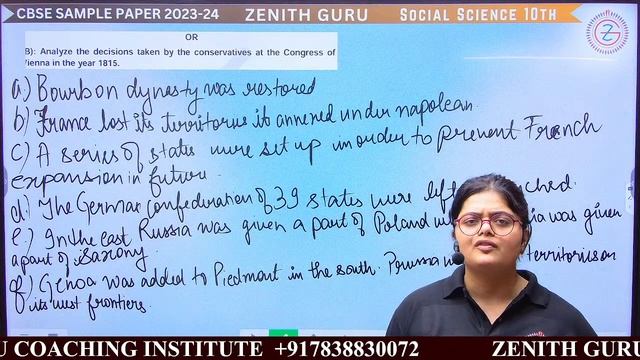 CBSE SAMPLE PAPER 2023-24 ZENITH GURU SOCIAL SCIENCE 10TH
OR
B): Analyze the decisions taken by the conservatives at the Congress of
ienna in the year 1815.
a) Bourbon dynesty was restored
b) France lost its territories it annexed under napolean.
c) A series of states were set up in order to prevent French
expansion in future.
d) The German confederation of 39 states were left
e.) In the east Russia was given a part of Poland was given
a part of Saxony.
f) Genoa was added to Piedmont in the south. Prussia territories on
its west frontiers.
U COACHING INSTITUTE +917838830072 ZENITH GURU